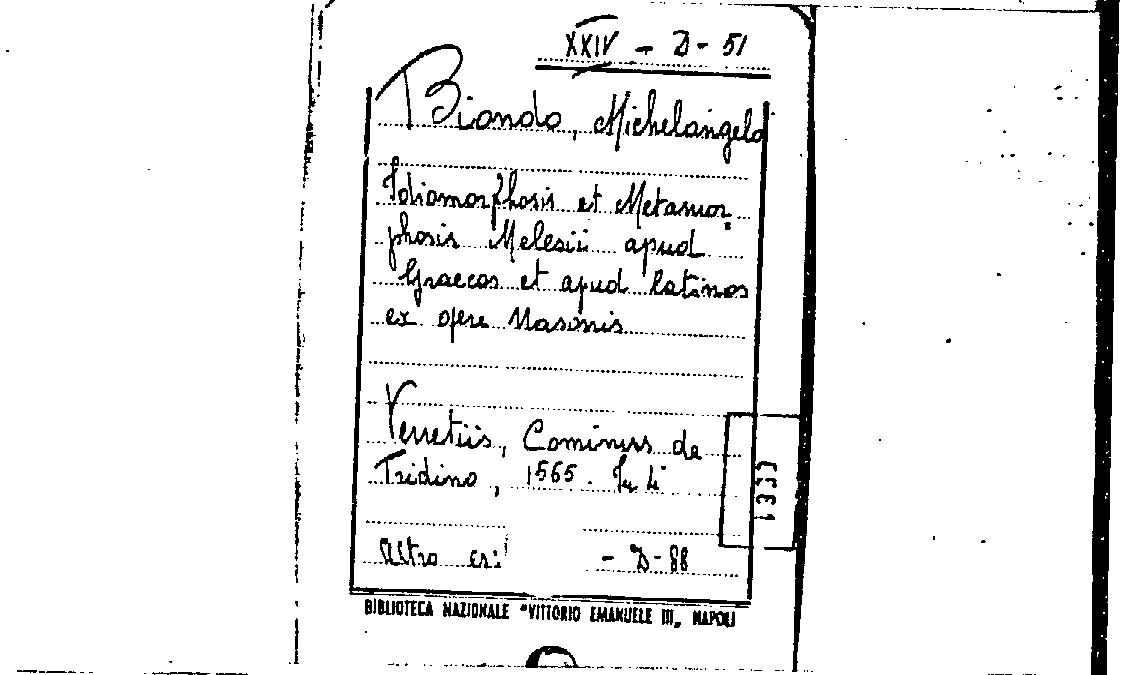 XXIV - D - 51
Biondo, Michelangelo
Idiomorphosis et Metamor
phosis Melesii apud
Graecos et apud latinos
ex opere Nasonis
Venetiis, Cominus de
Tridino, 1565.
Altro es:
- D - 88
BIBLIOTECA NAZIONALE "VITTORIO EMANUELE III„ NAPOLI